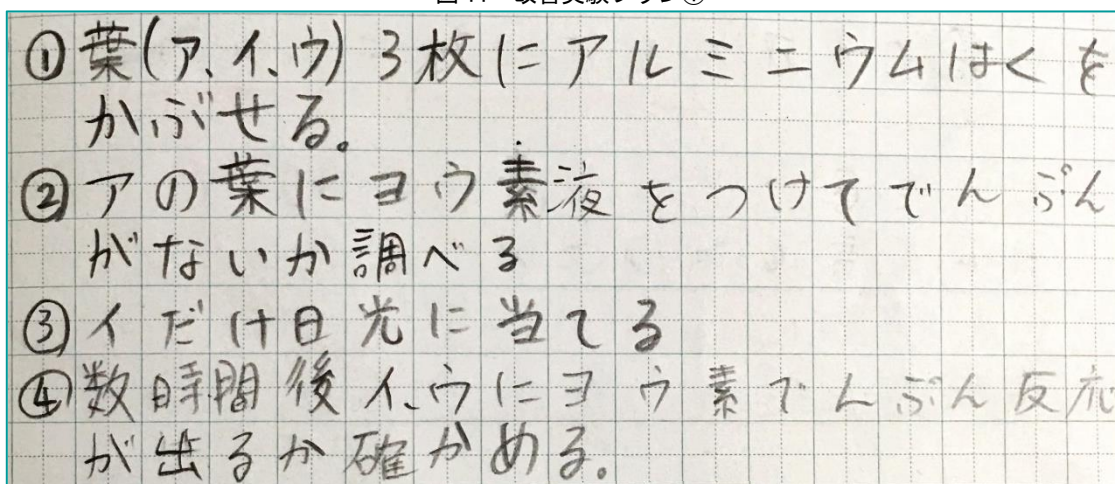 ①葉(ア、イ、ウ)3枚にアルミニウムはくを
かぶせる。
②アの葉にヨウ素液をつけてでんぷん
がないか調べる
③イだけ日光に当てる
④数時間後イ、ウにヨウ素でんぷん反応
が出るか確かめる。